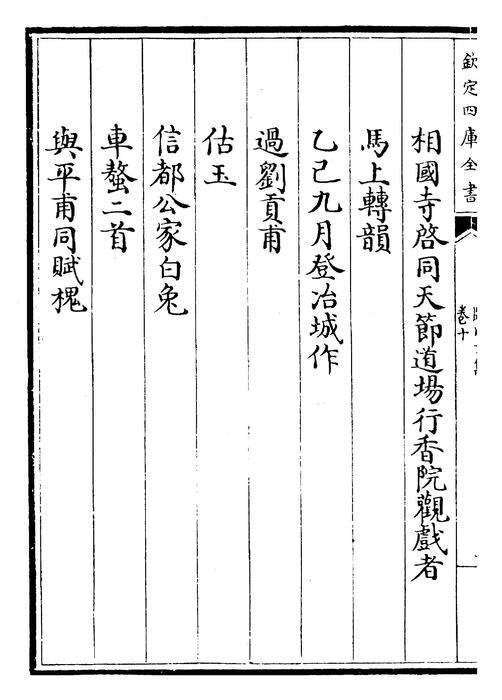 欽定四庫全書
卷十
相國寺啓同天節道場行香院觀戲者
馬上轉韻
乙己九月登冶城作
過劉貢甫
估玉
信都公家白兎
車螯二首
與平甫同賦槐